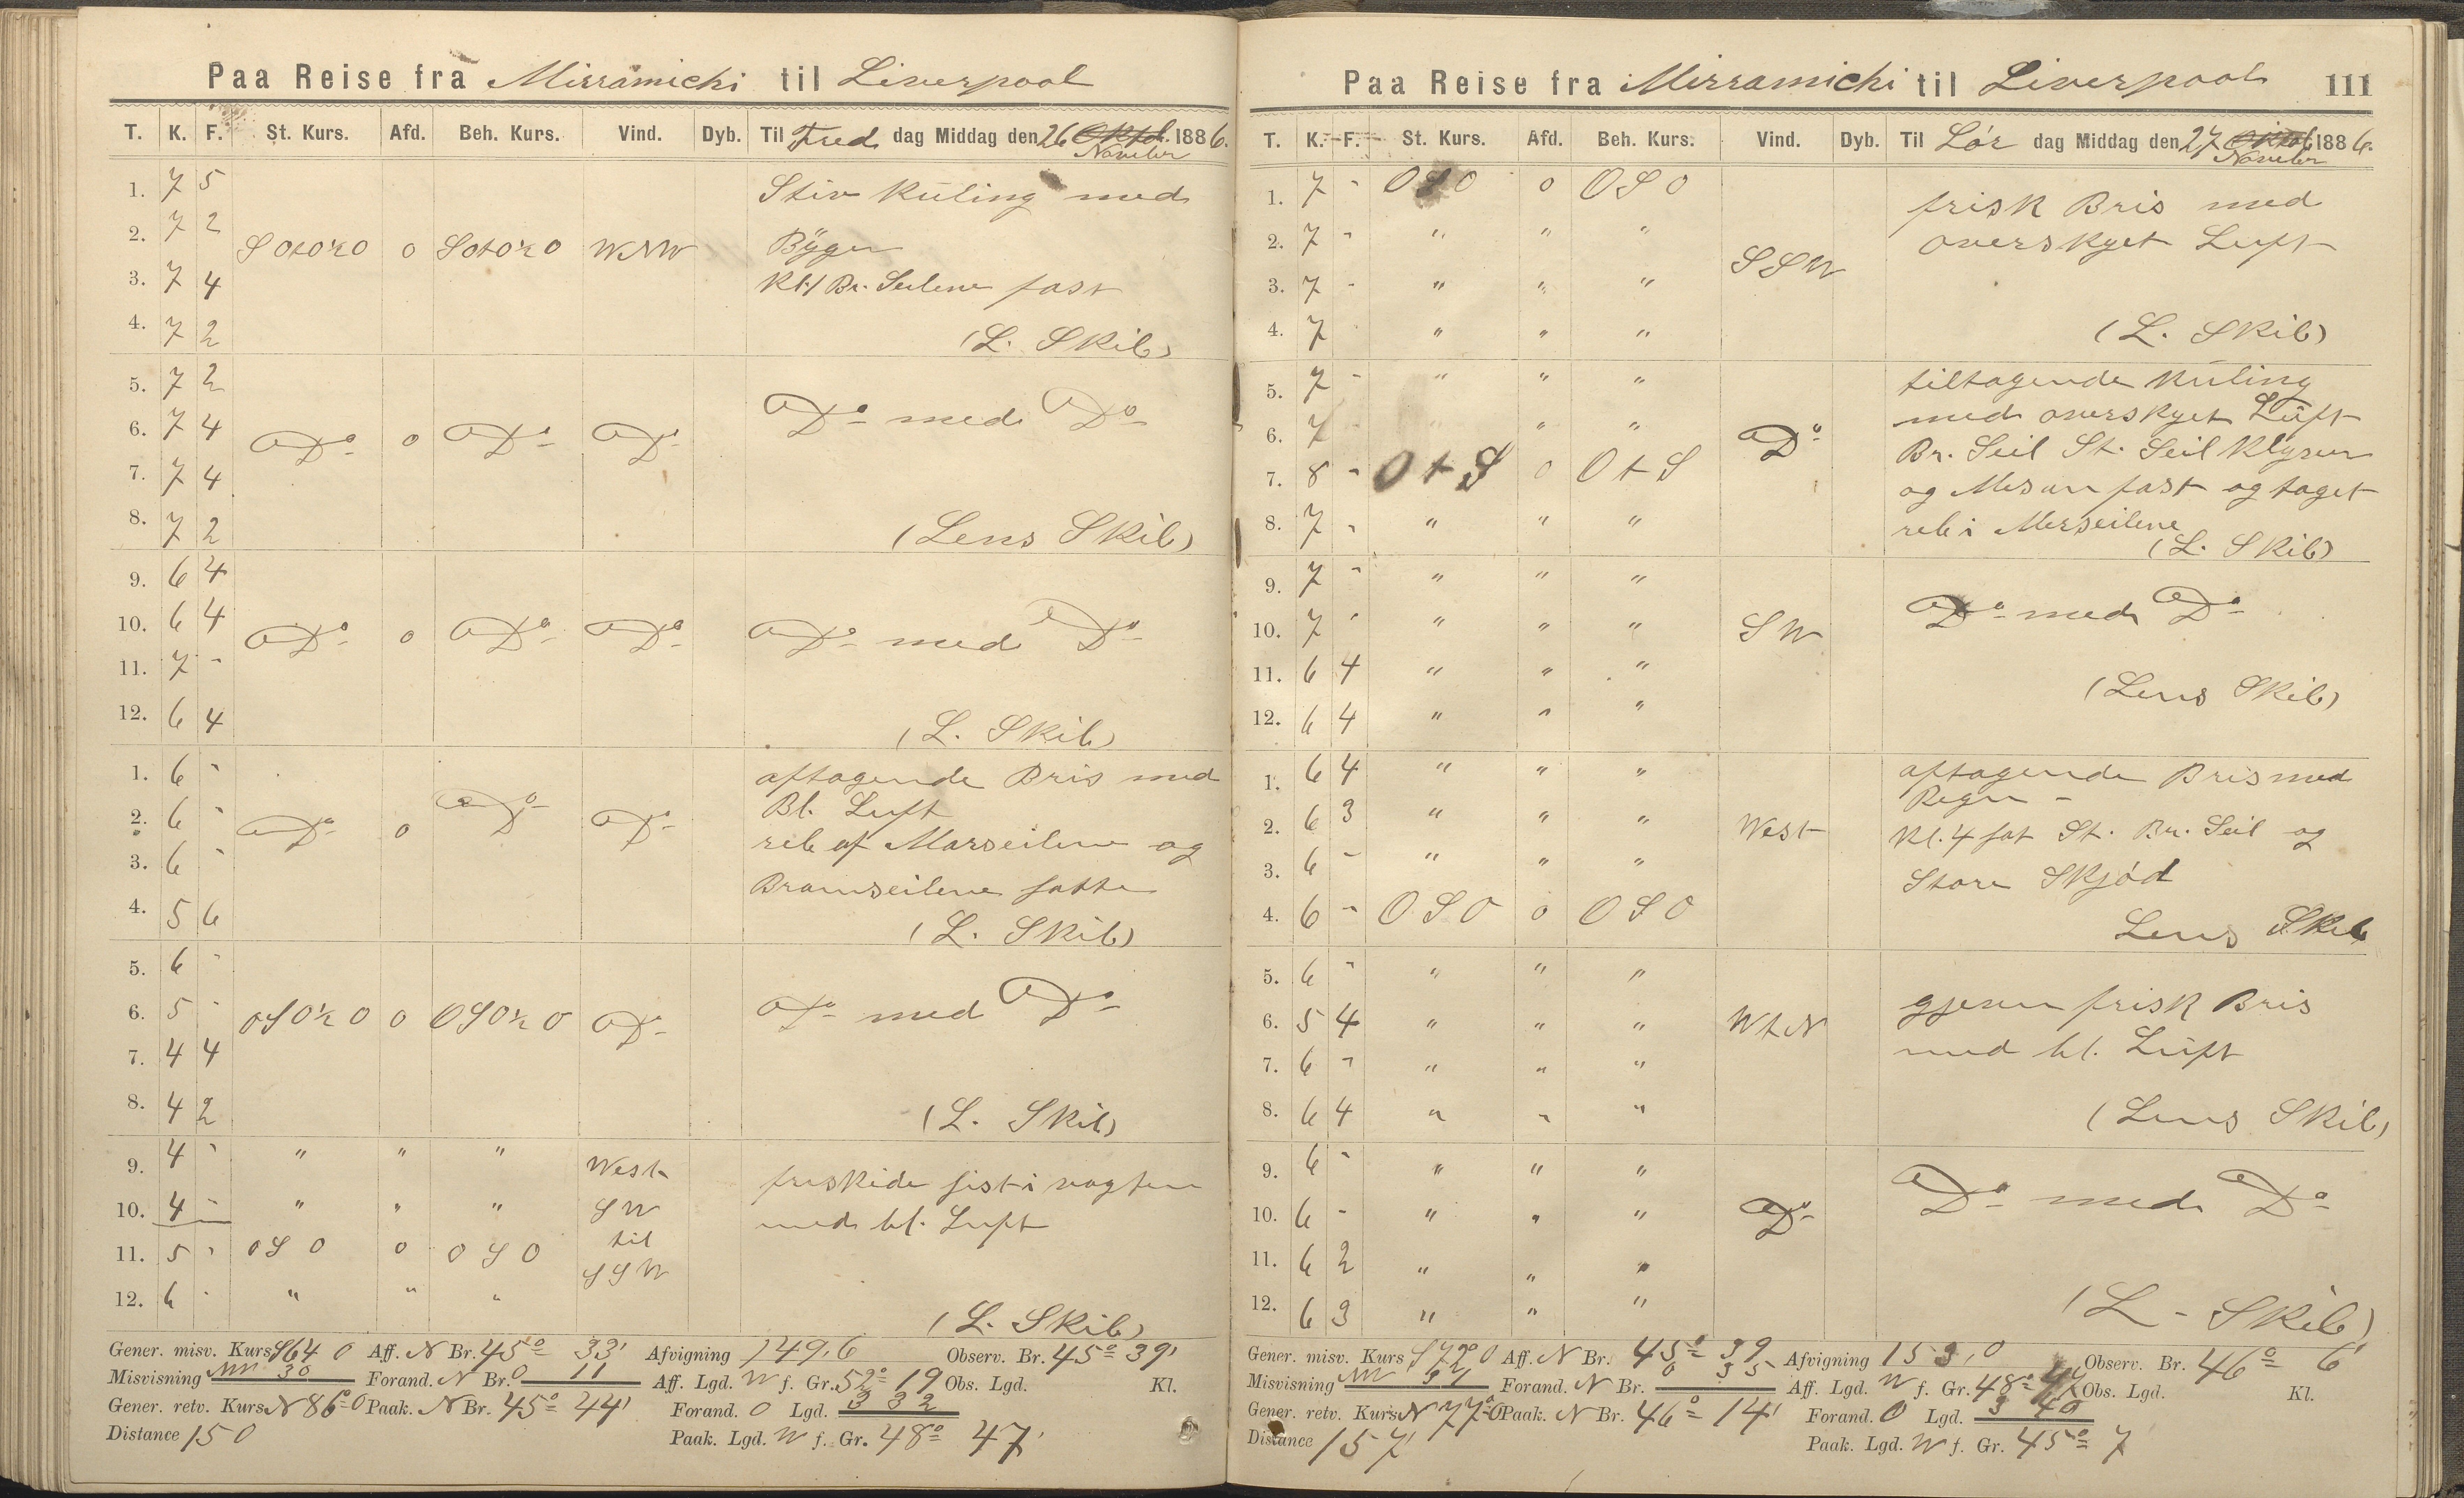 Paa Reise fra Mirramichi til Liverpool
T. K. F. St. Kurs. Afd. Beh. Kurs. Vind. Dyb. Til Fred dag Middag den 26 Oktob. 1886.
Novebr
1. 7 5 Stiv Kuling med
2. 7 2 SOtO½O o SOtO½O WNW Byger
3. 7 4 Kl. / Br. Seilene fast
4. 7 2 (L. Skib)
5. 7 2
6. 7 4 Do o Do Do Do med Do
7. 7 4
8. 7 2 (Lens Skib)
9. 6 4
10. 6 4 Do o Do Do Do med Do
11. 7 -
12. 6 4 (L. Skib)
1. 6 - aftagende Bris med
2. 6 - Do o Do Do Bl. Luft
3. 6 - reb af Marseilene og
Bramseilene satte
4. 5 6 (L. Skib)
5. 6 -
6. 5 - OSO½O o OSO½O Do Do med Do
7. 4 4
8. 4 2 (L. Skib)
9. 4 - " " " West friskede sist i vagten
10. 4 - " " " SW med bl. Luft
11. 5 - OSO o OSO til
SSW
12. 6 - " " " (L. Skib)
Gener. misv. Kurs S64 O Aff. N Br. 45° 33' Afvigning 149,6 Observ. Br. 45° 39'
Misvisning NW 30 Forand. N Br. 0 11 Aff. Lgd. W f. Gr. 52° 19 Obs. Lgd. Kl.
Gener. retv. Kurs N 86° O Paak. N Br. 45° 44' Forand. O Lgd. 3 32
Distance 150 Paak. Lgd. W f. Gr. 48° 47'
Paa Reise fra Mirramichi til Liverpool 111
T. K. F. St. Kurs. Afd. Beh. Kurs. Vind. Dyb. Til Lør dag Middag den 27 Oktob. 1886.
Novebr
1. 7 - OSO o OSO frisk Bris med
2. 7 - " " " overskyet Luft
3. 7 - " " " SSW
4. 7 " " " (L. Skib)
5. 7 - " " " tiltagende Kuling
med overskyet Luft
6. 7 - " " " Do Br. Seil St. Seil Klyver
7. 8 - OtS o OtS og Mesan fast og taget
8. 7 - " " " reb i Merseilene
(L. Skib)
9. 7 - " " " Do med Do
10. 7 - " " " SW
11. 6 4 " " " (Lens Skib)
12. 6 4 " " "
1. 6 4 " " " aftagende Bris med
Regn -
2. 6 3 " " " West Kl. 4 sat St. Br. Seil og
3. 6 - " " " Store Skjød
4. 6 - OSO o OSO Lens Skib
5. 6 - " " "
6. 5 4 " " " WtN gjenn frisk Bris
7. 6 - " " " med bl. Luft
8. 6 4 " " " (Lens Skib)
9. 6 - " " "
10. 6 - " " " Do Do med Do
11. 6 2 " " "
12. 6 3 " " " (L - Skib)
Gener. misv. Kurs O Aff. N Br. 45° 39 Afvigning 153,0 Observ. Br. 46° 6'
Misvisning NW Forand. N Br. 0 35 Aff. Lgd. W f. Gr. 48° 47 Obs. Lgd. Kl.
Gener. retv. Kurs N 77° O Paak. N Br. 46° 14' Forand. O Lgd. 3 40
Distance 157' Paak. Lgd. W f. Gr. 45° 7